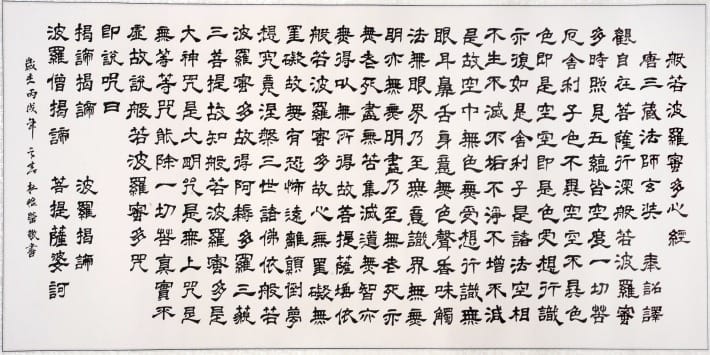 般若波羅蜜多心經
唐三藏法師玄奘 奉詔譯
觀自在菩薩行深般若波羅蜜
多時照見五蘊皆空度一切苦
厄舍利子色不異空空不異色
色即是空空即是色受想行識
亦復如是舍利子是諸法空相
不生不滅不垢不淨不增不減
是故空中無色無受想行識無
眼耳鼻舌身意無色聲香味觸
法無眼界乃至無意識界無無
明亦無無明盡乃至無老死亦
無老死盡無苦集滅道無智亦
無得以無所得故菩提薩埵依
般若波羅蜜多故心無罣礙無
罣礙故無有恐怖遠離顛倒夢
想究竟涅槃三世諸佛依般若
波羅蜜多故得阿耨多羅三藐
三菩提故知般若波羅蜜多是
大神咒是大明咒是無上咒是
無等等咒能除一切苦真實不
虛故說般若波羅蜜多咒
即說咒曰
揭諦揭諦 波羅揭諦
波羅僧揭諦 菩提薩婆訶
歲在丙戌年 敬書